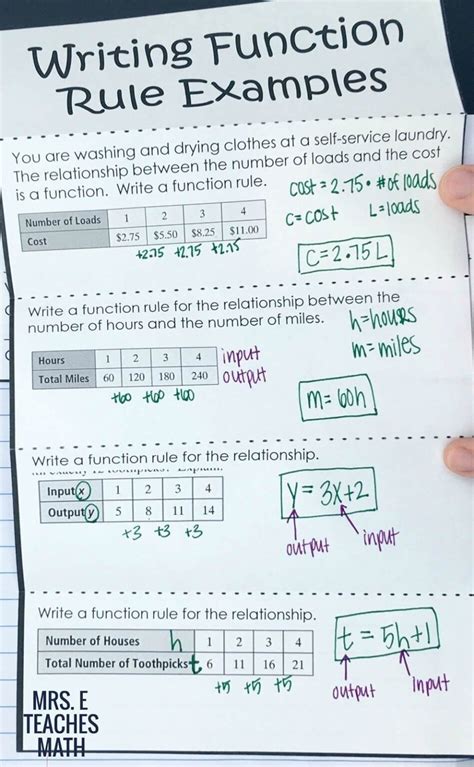 Writing Function
Rule Examples
You are washing and drying clothes at a self-service laundry.
The relationship between the number of loads and the cost
is a function. Write a function rule.
cost = 2.75 • # of loads
C = cost L = loads
Number of Loads 1 2 3 4
Cost $2.75 $5.50 $8.25 $11.00
+2.75 +2.75 +2.75
C = 2.75L
Write a function rule for the relationship between the
number of hours and the number of miles.
h = hours
m = miles
Hours 1 2 3 4 input
Total Miles 60 120 180 240 output
+60 +60 +60
m = 60h
Write a function rule for the relationship.
Input x 1 2 3 4
Output y 5 8 11 14
+3 +3 +3
y = 3x+2
output input
Write a function rule for the relationship.
Number of Houses h 1 2 3 4
Total Number of Toothpicks t 6 11 16 21
+5 +5 +5
t = 5h+1
output input
MRS. E
TEACHES
MATH